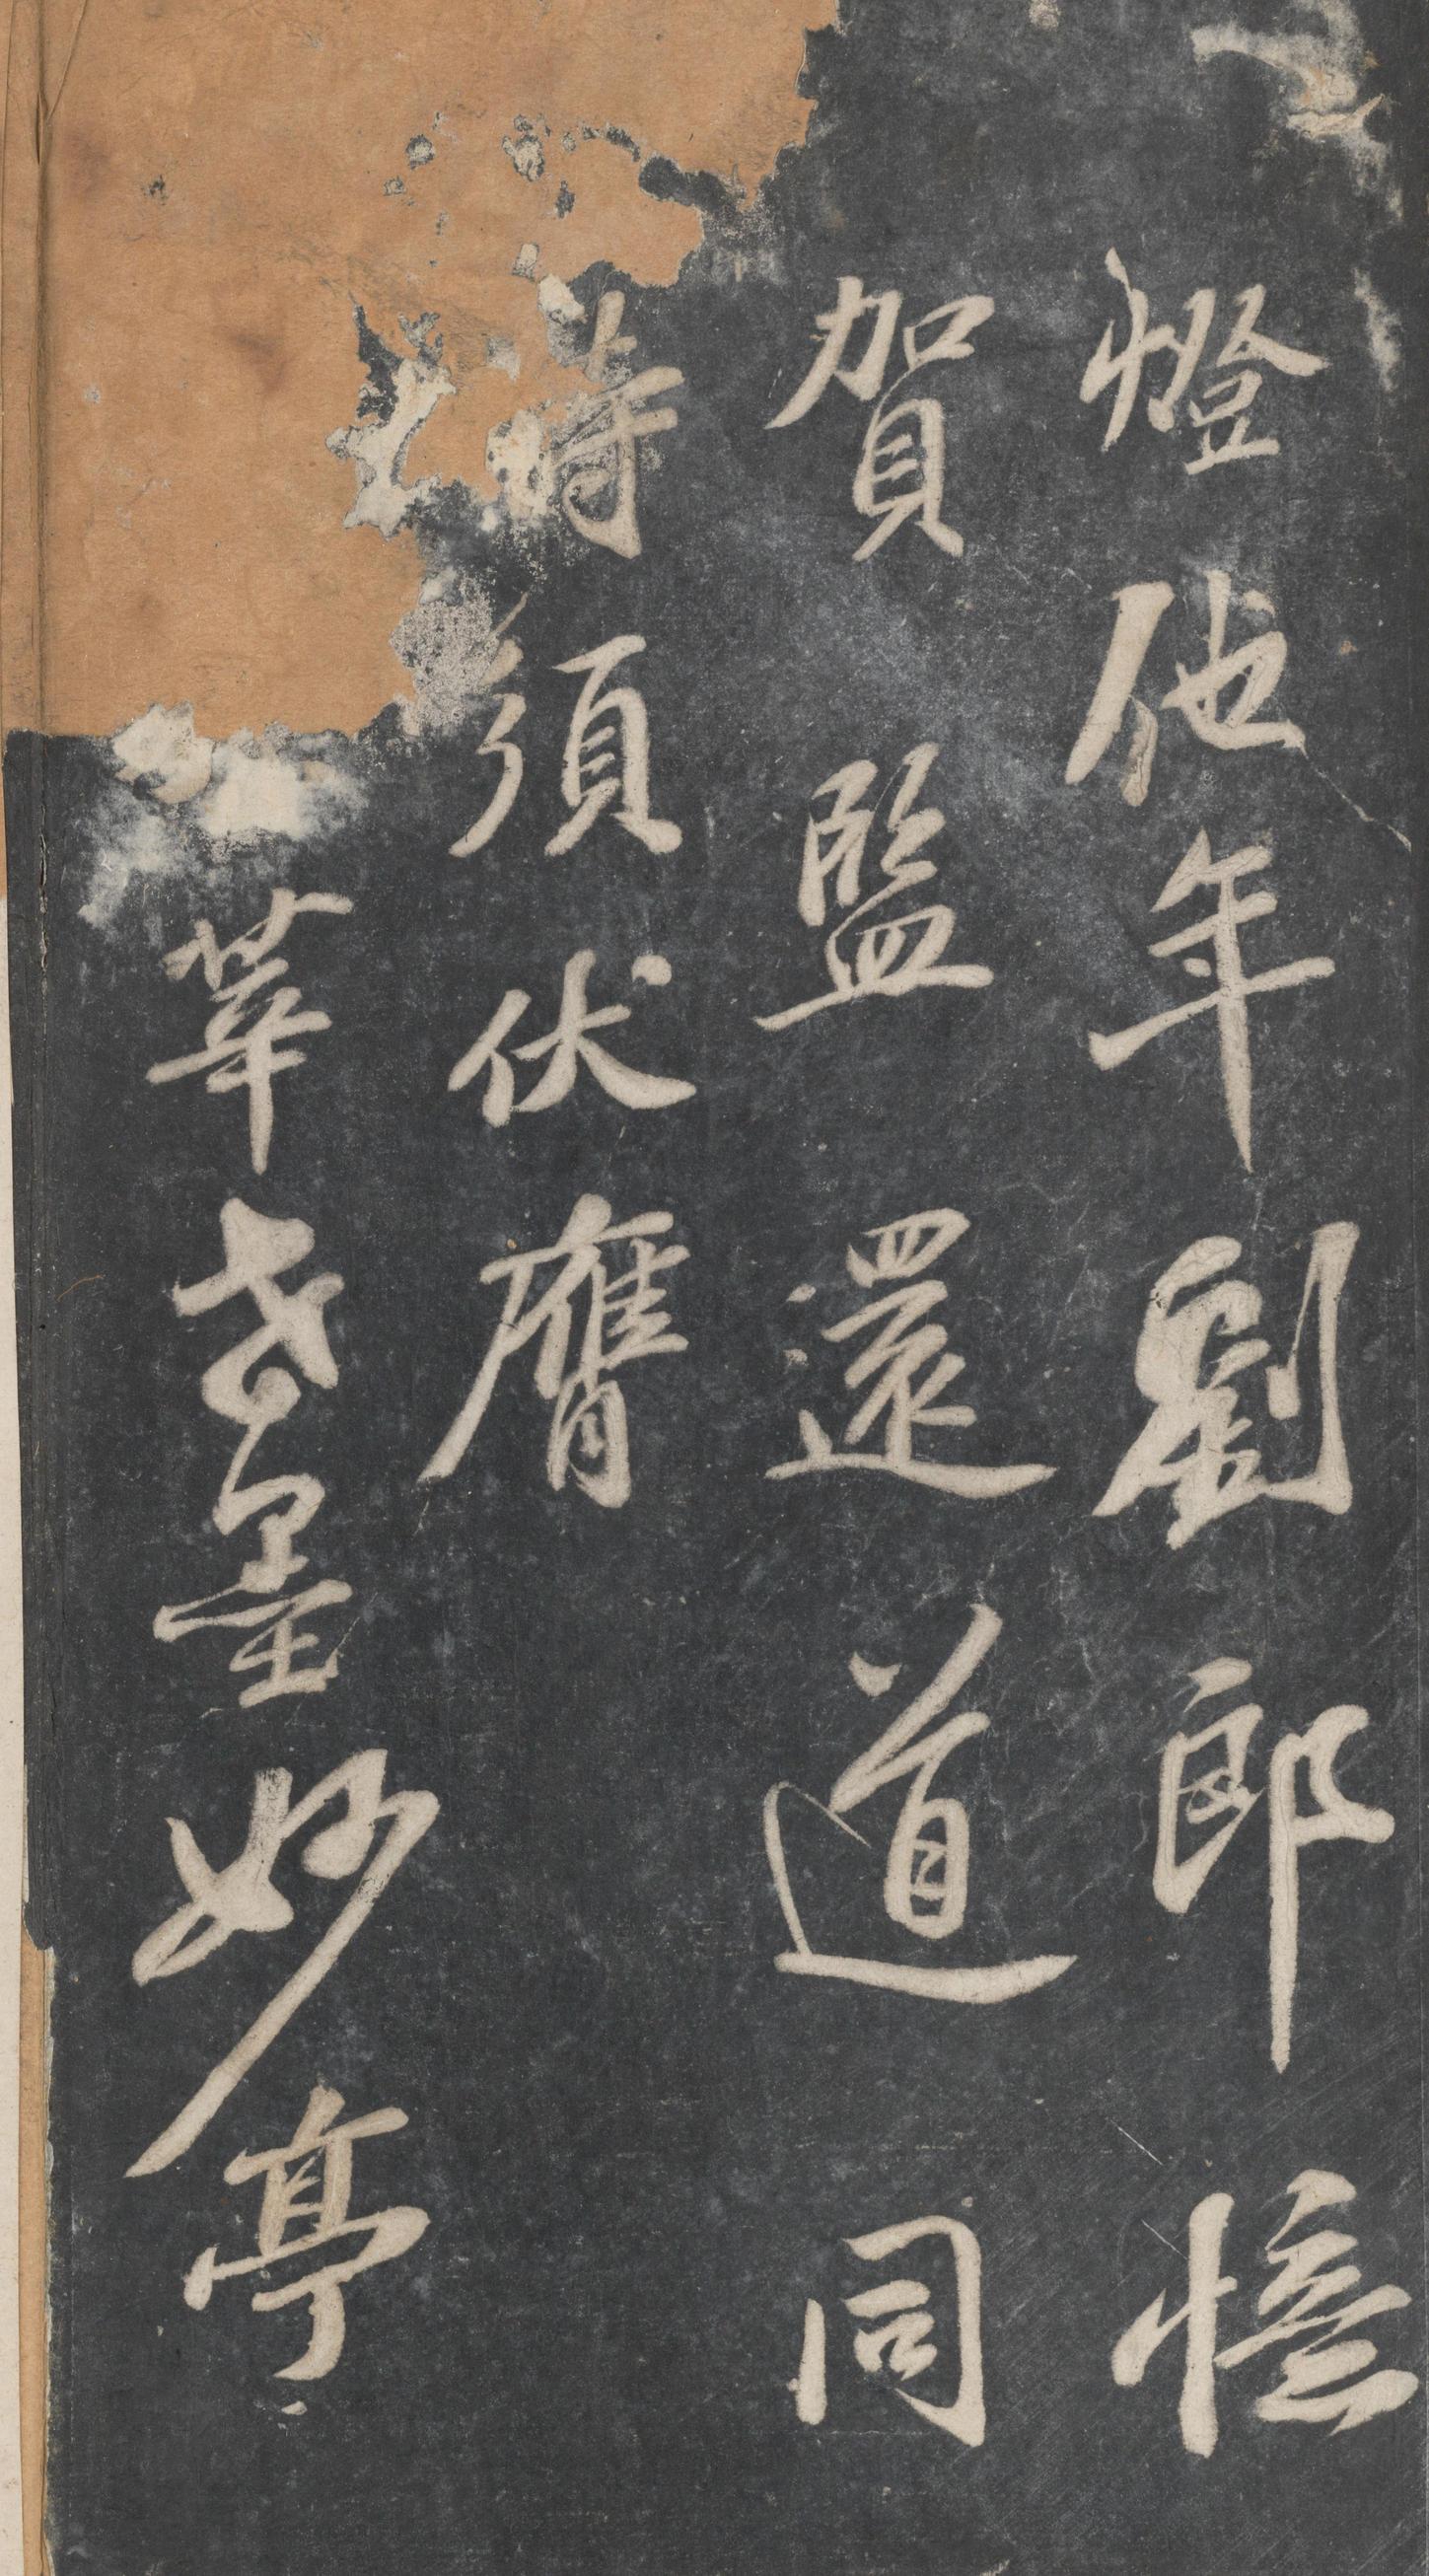 燈他年劉郎憶
賀監還道同
時須伏膺
莘老墨妙亭